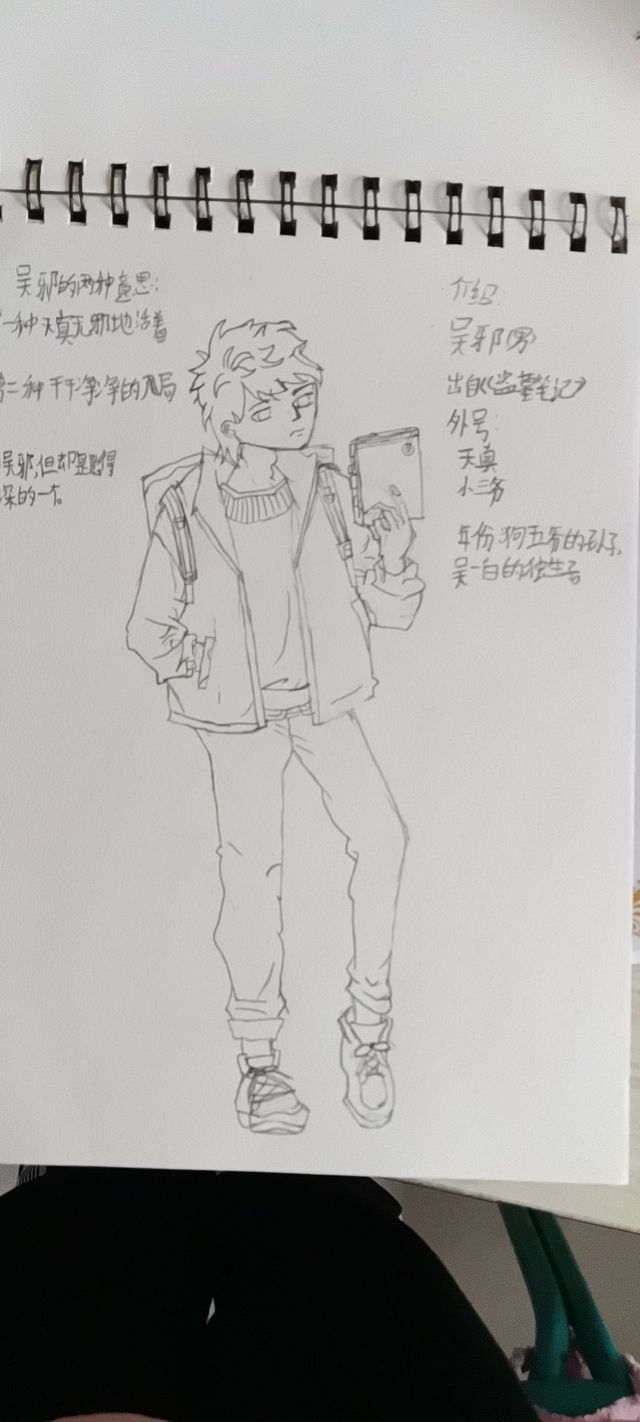 吴邪的两种意思:
一种天真无邪地活着
第二种干干净净的入局
吴邪,但却是陷得
深的一个。
介绍:
吴邪(男)
出自《盗墓笔记》
外号:
天真
小三爷
年份:狗五爷的孙子,
吴一白的独生子